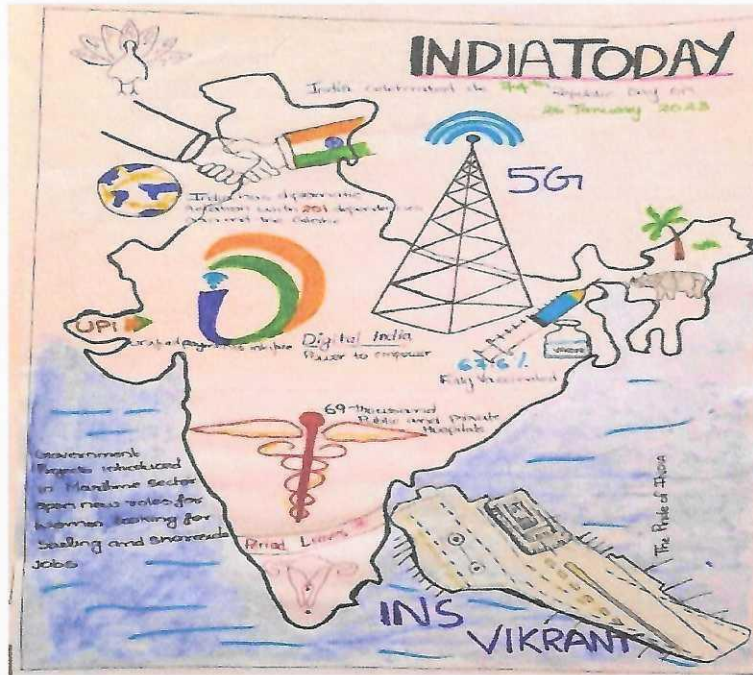 INDIA TODAY
India celebrated de 74th Republic Day on
26 January 2023
5G
India has diplomatic
relation with 201 dependencies
around the Globe
UPI
Unified payments
Digital India
Power to empower
67.6%
Fully Vaccinated
69-thousand
Public and private
Hospitals
Government
Projects introduced
in Maritime sector
open new roles for
women looking for
Sailing and Shoreside
JOBS
Period Leave
The Pride of INDIA
INS
VIKRANT